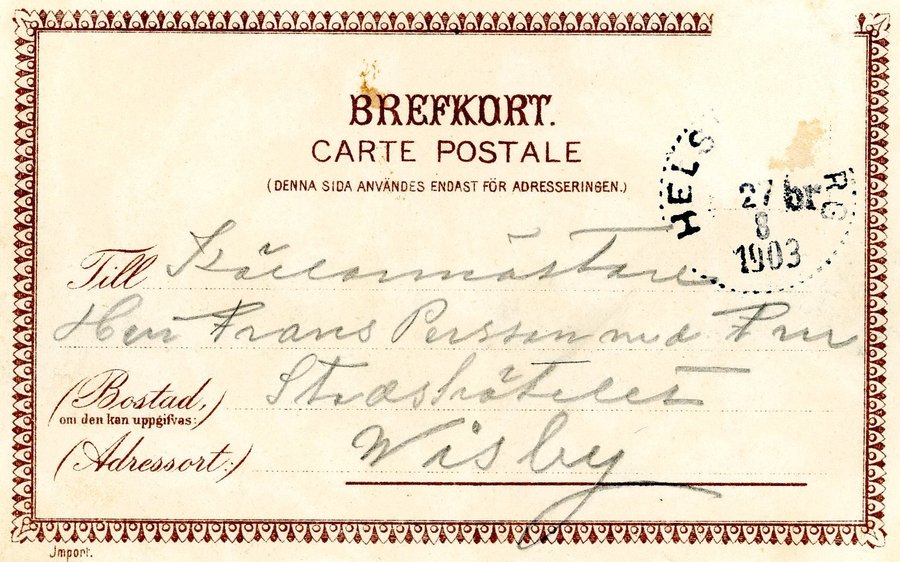 BREFKORT.
CARTE POSTALE
(DENNA SIDA ANVÄNDES ENDAST FÖR ADRESSERINGEN.)
HELS RG
27 br
8
1903
Till Källarmästare
Herr Frans Persson med Fru
(Bostad,) Stadshôtelet
om den kan uppgifvas:
(Adressort:) Wisby
Import.